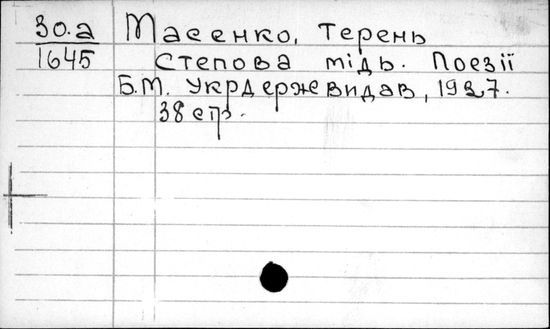 30.а Масенко, Терень
1645 Степова мідь. Поезії
Б.М. Укрдержвидав, 1927.
38 стр.